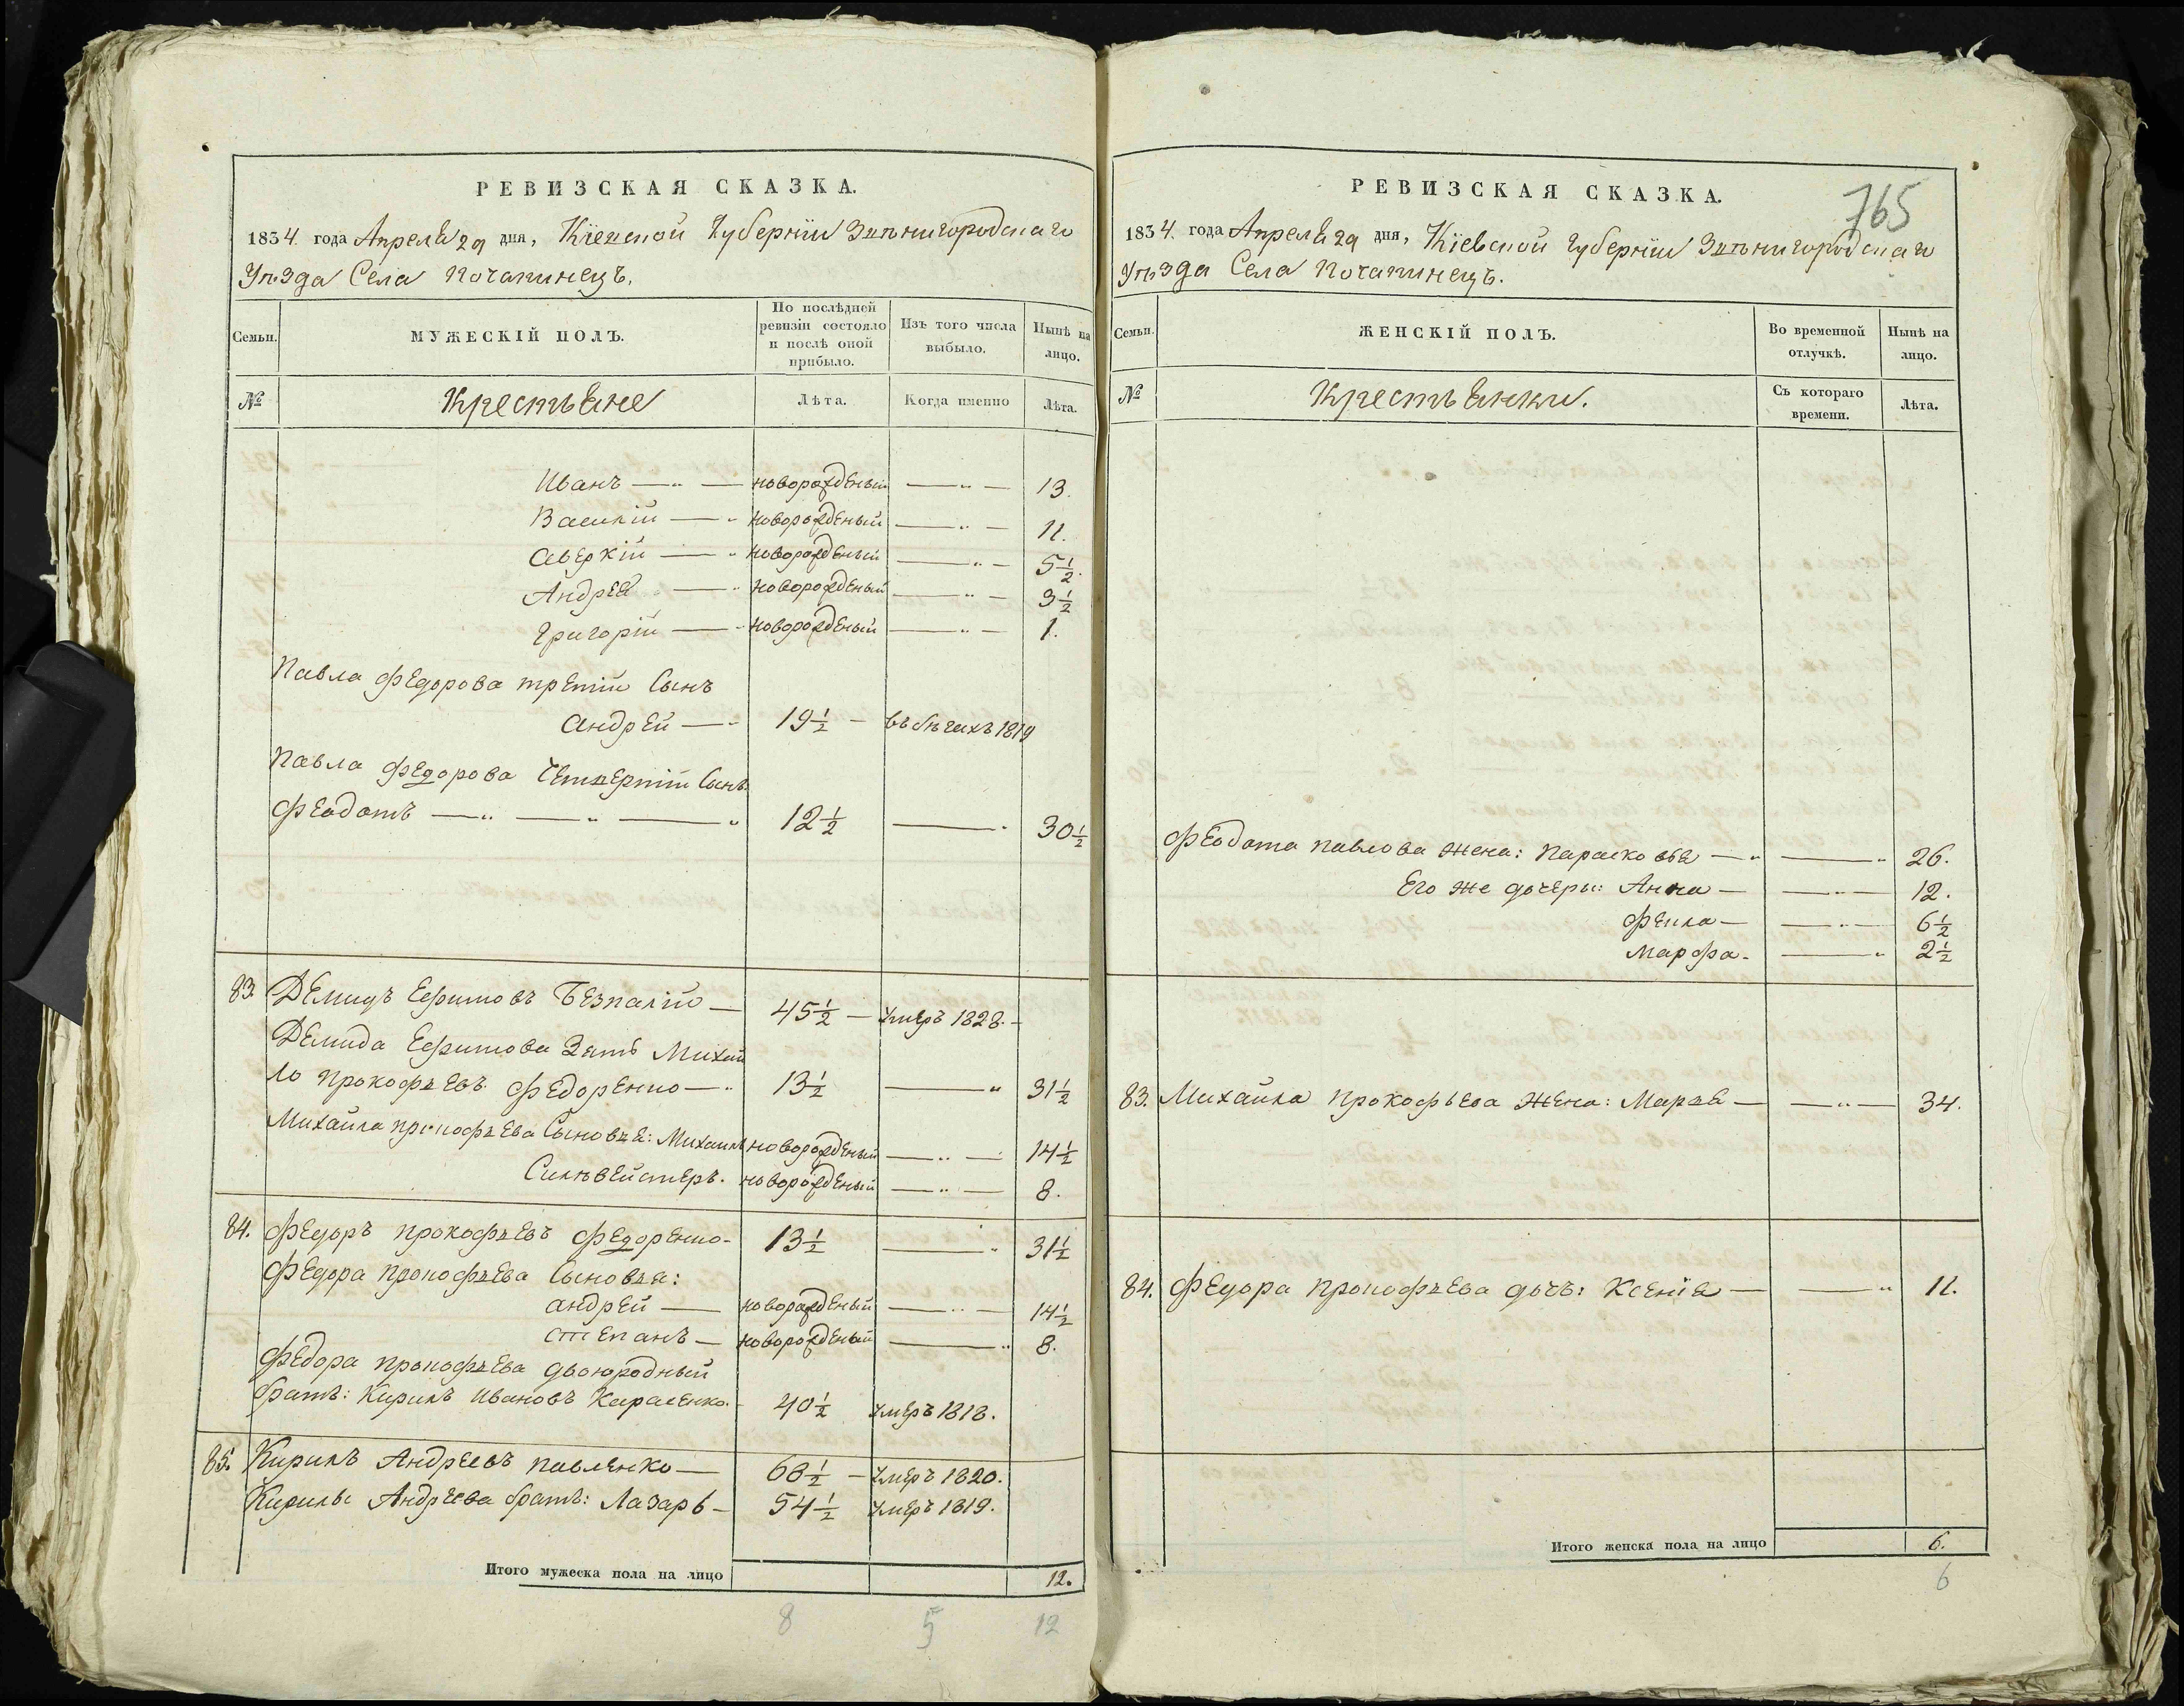 РЕВИЗСКАЯ СКАЗКА.
1834. года Апреля 29 дня, Кіевской Губерніи Звѣнигородскаго
Уѣзда Села Почапинецъ.
Семьи. МУЖЕСКІЙ ПОЛЪ. По послѣдней ревизіи состояло и послѣ оной прибыло. Изъ того числа выбыло. Нынѣ на лицо.
№ Крестьяне Лѣта. Когда именно Лѣта.
Иванъ — новорожденый — 13.
Василій — новорожденый — 11.
Аверкій — новорожденый — 5½.
Андрей — новорожденый — 3½
Григорій — новорожденый — 1.
Павла Федорова третій Сынъ
Андрей — 19½ — въ бѣгахъ 1819
Павла Федорова Четвертій Сынъ
Феодотъ — 12½ — 30½
83. Демидъ Ефимовъ Безпалій — 45½ — умеръ 1828.
Демида Ефимова Зять Михай
ло Прокофьевъ Федоренко — 13½ — 31½
Михайла Прокофьева Сыновья: Михаилъ новорожденый — 14½
Сильвейстеръ. новорожденый — 8.
84. Федоръ Прокофьевъ Федоренко - 13½ — 31½
Федора Прокофьева Сыновья:
Андрей — новорожденый — 14½
Степанъ — новорожденый — 8.
Федора Прокофьева двоюродный
братъ: Кирилъ Ивановъ Карасенко. 40½ умеръ 1818.
85. Кирилъ Андреевъ Павленко — 68½ — умеръ 1820.
Кирилы Андреева братъ: Лазарь — 54½ умеръ 1819.
Итого мужеска пола на лицо 12.
8 5 12
РЕВИЗСКАЯ СКАЗКА.
765
1834. года Апреля 29 дня, Кіевской Губерніи Звѣнигородскаго
Уѣзда Села Почапинецъ.
Семьи. ЖЕНСКІЙ ПОЛЪ. Во временной отлучкѣ. Нынѣ на лицо.
№ Крестьянки. Съ котораго времени. Лѣта.
Феодота Павлова жена: Парасковья — 26.
Его же дочеры: Анна — 12.
Фекла — 6½
Марфа - 2½
83. Михайла Прокофьева жена: Марья — 34.
84. Федора Прокофьева дочъ: Ксенія — 11.
Итого женска пола на лицо 6.
6